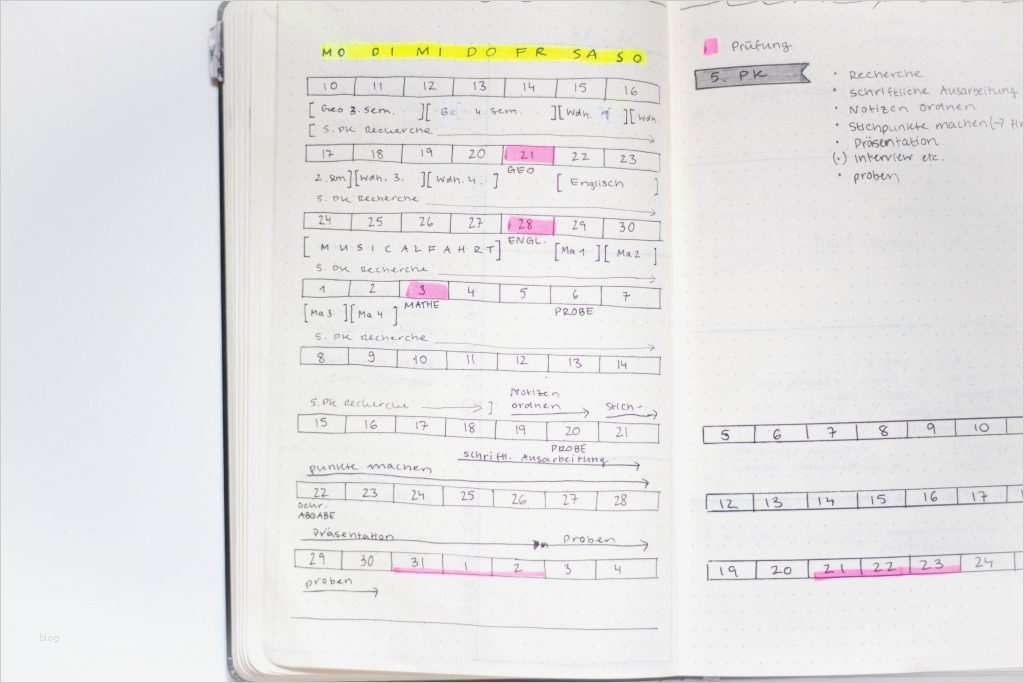 MO DI MI DO FR SA SO
10 11 12 13 14 15 16
[ Geo 3. Sem. ][ 4. Sem. ][ Wdh. ][ Wdh.
[ 5. PK Recherche
17 18 19 20 21 22 23
GEO
2. Sem][Wdh. 3. ][ Wdh. 4. ] [ Englisch ]
5. PK Recherche
24 25 26 27 28 29 30
ENGL.
[ MUSICALFAHRT ] [ Ma 1 ][ Ma 2 ]
5. PK Recherche
1 2 3 4 5 6 7
MATHE PROBE
[Ma 3 ][Ma 4 ]
5. PK Recherche
8 9 10 11 12 13 14
Notizen
5. PK Recherche ] ordnen Stich-
15 16 17 18 19 20 21
PROBE
schriftl. Ausarbeitung
punkte machen
22 23 24 25 26 27 28
Schr.
ABGABE
Präsentation Proben
29 30 31 1 2 3 4
proben
Prüfung
5. PK
• Recherche
• schriftliche Ausarbeitung
• Notizen ordnen
• Stichpunkte machen (→
• Präsentation
(•) Interview etc.
• proben
5 6 7 8 9 10
12 13 14 15 16 17
19 20 21 22 23 24
blog